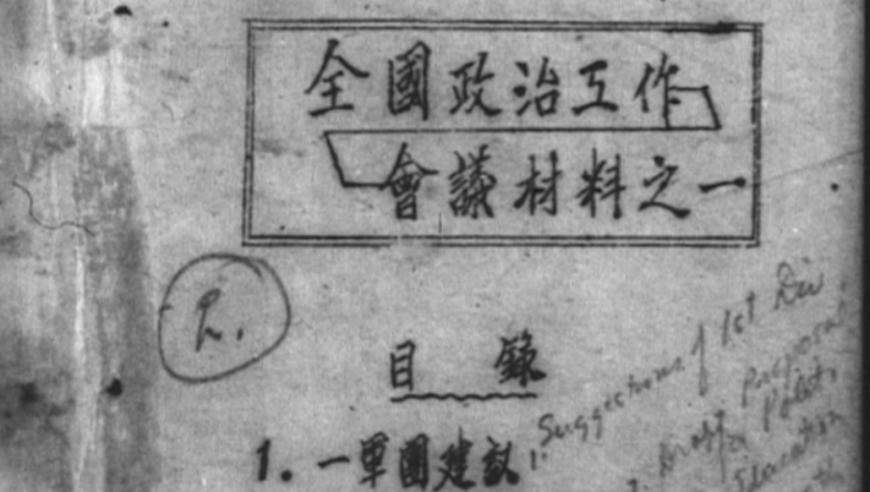 全國政治工作
會議材料之一
目 錄
1. 一軍團建議
1. Suggestions of 1st Div
2. Draft Proposal
Polit.
Education